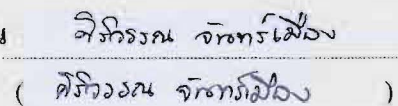 ศิริวรรณ จันทร์เมือง
( ศิริวรรณ จันทร์เมือง )